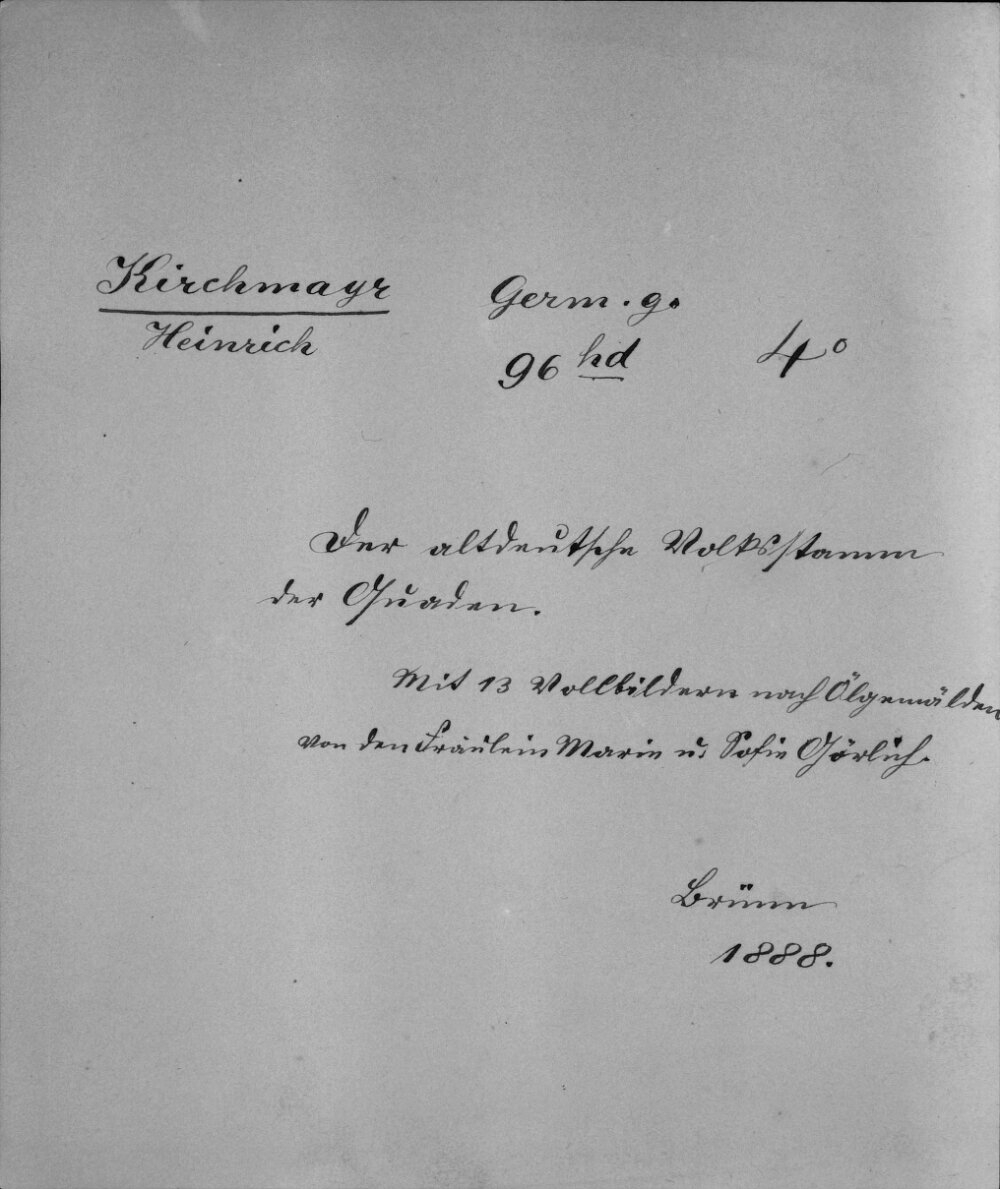 Kirchmayr
Heinrich
Germ. g.
96 hd 4°
Der altdeutsche Volksstamm
der Quaden.
Mit 13 Vollbildern nach Ölgemälden
von den Fräulein Marie u. Sofie Görlich.
Brünn
1888.